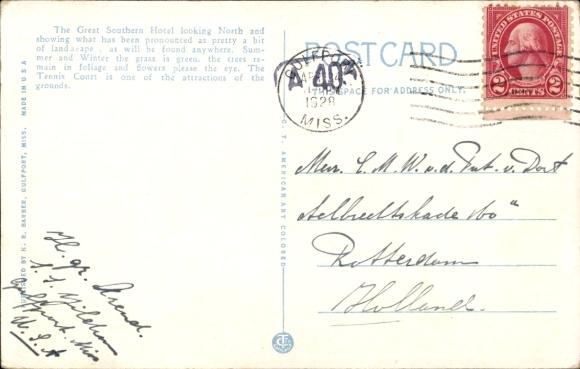 The Great Southern Hotel looking North and
showing what has been pronounced as pretty a bit
of landscape, as will be found anywhere. Sum-
mer and Winter the grass is green, the trees re-
main in foliage and flowers please the eye. The
Tennis Court is one of the attractions of the
grounds.
PUBLISHED BY H. R. BARBER, GULFPORT, MISS. MADE IN U.S.A.
POST CARD
THIS SPACE FOR ADDRESS ONLY.
GULFPORT
1928
MISS.
UNITED STATES POSTAGE
2 CENTS 2
C. T. AMERICAN ART COLORED
Mevr. C. M. W. v. d. Put. v. Dort
Aelbrechtskade
Rotterdam
Holland.
H. gr. Arend.
S. S.
Gulfport. Miss
U. S. A